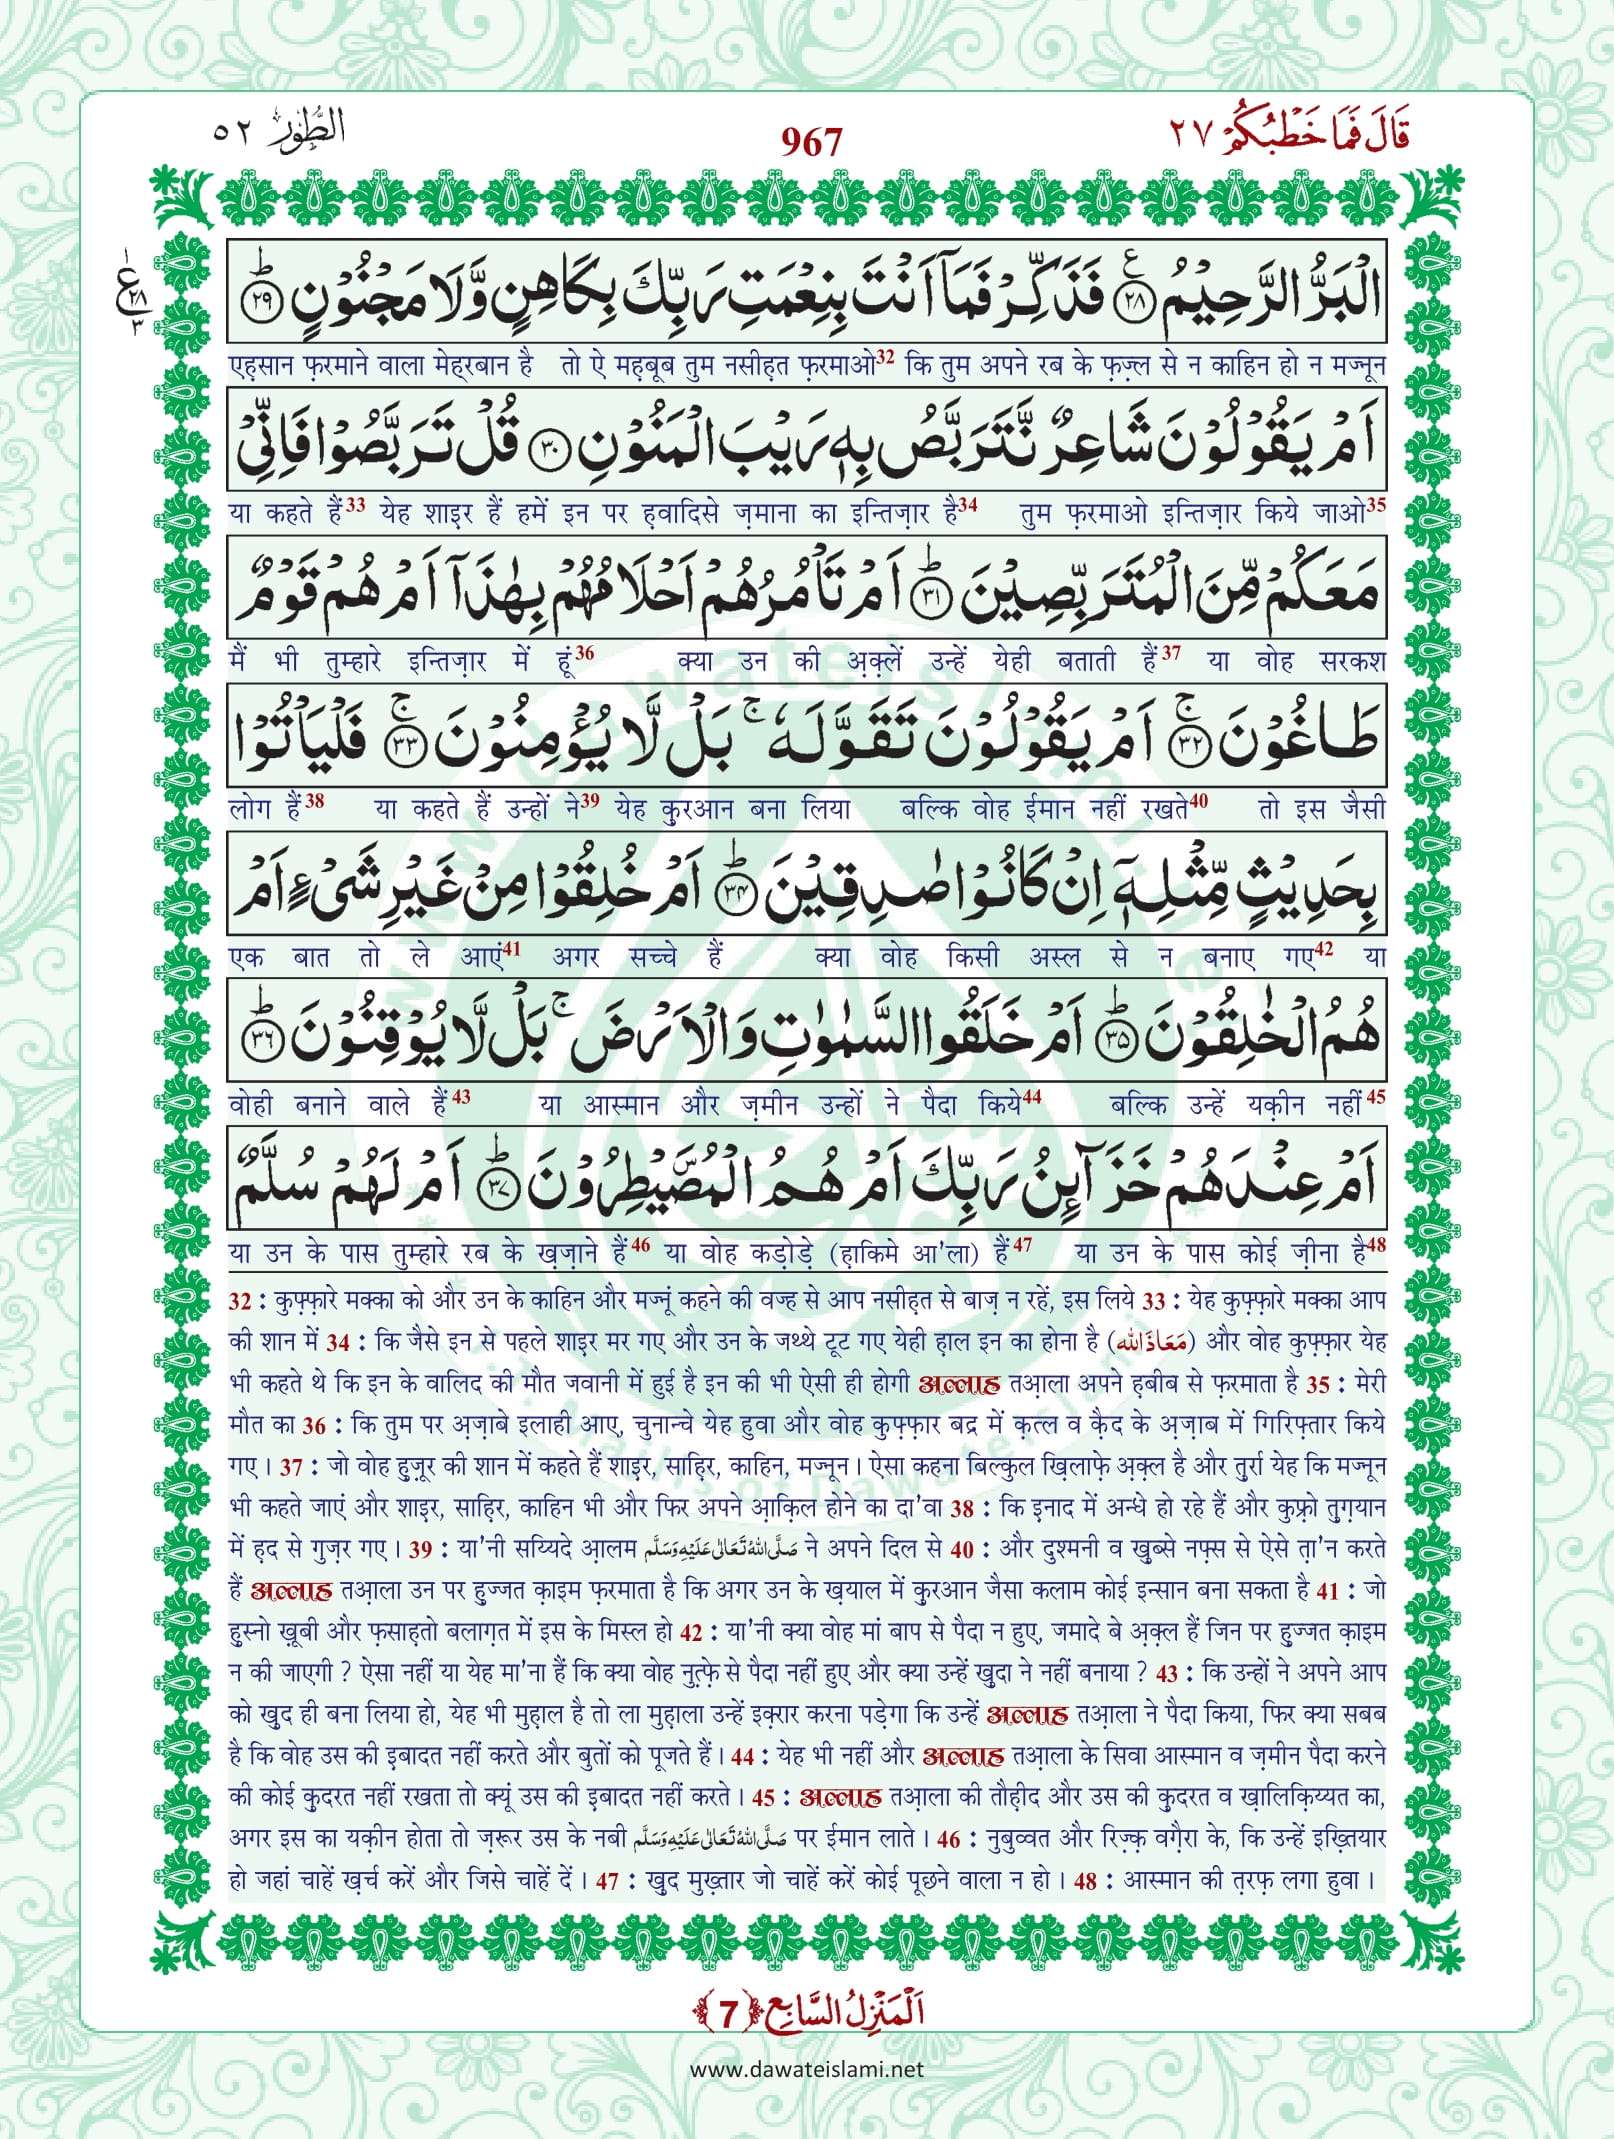 الطُّوْر ٥٢
967
قَالَ فَمَا خَطْبُكُمْ ٢٧
الْبَرُّ الرَّحِيْمُ ﴿٢٨﴾ فَذَكِّرْ فَمَاۤ اَنْتَ بِنِعْمَتِ رَبِّكَ بِكَاهِنٍ وَّلَا مَجْنُوْنٍ ﴿٢٩﴾
एह़सान फ़रमाने वाला मेह्रबान है तो ऐ मह़बूब तुम नसीह़त फ़रमाओ32 कि तुम अपने रब के फ़ज़्ल से न काहिन हो न मज्नून
اَمْ يَقُوْلُوْنَ شَاعِرٌ نَّتَرَبَّصُ بِهٖ رَيْبَ الْمَنُوْنِ ﴿٣٠﴾ قُلْ تَرَبَّصُوْا فَاِنِّيْ
या कहते हैं33 येह शाइर हैं हमें इन पर ह़वादिसे ज़माना का इन्तिज़ार है34 तुम फ़रमाओ इन्तिज़ार किये जाओ35
مَعَكُمْ مِّنَ الْمُتَرَبِّصِيْنَ ﴿٣١﴾ اَمْ تَاْمُرُهُمْ اَحْلَامُهُمْ بِهٰذَاۤ اَمْ هُمْ قَوْمٌ
मैं भी तुम्हारे इन्तिज़ार में हूं36 क्या उन की अ़क़्लें उन्हें येही बताती हैं37 या वोह सरकश
طَاغُوْنَ ﴿٣٢﴾ اَمْ يَقُوْلُوْنَ تَقَوَّلَهٗ ۚ بَلْ لَّا يُؤْمِنُوْنَ ﴿٣٣﴾ فَلْيَاْتُوْا
लोग हैं38 या कहते हैं उन्हों ने39 येह क़ुरआन बना लिया बल्कि वोह ईमान नहीं रखते40 तो इस जैसी
بِحَدِيْثٍ مِّثْلِهٖۤ اِنْ كَانُوْا صٰدِقِيْنَ ﴿٣٤﴾ اَمْ خُلِقُوْا مِنْ غَيْرِ شَيْءٍ اَمْ
एक बात तो ले आएं41 अगर सच्चे हैं क्या वोह किसी अस्ल से न बनाए गए42 या
هُمُ الْخٰلِقُوْنَ ﴿٣٥﴾ اَمْ خَلَقُوا السَّمٰوٰتِ وَالْاَرْضَ ۚ بَلْ لَّا يُوْقِنُوْنَ ﴿٣٦﴾
वोही बनाने वाले हैं43 या आस्मान और ज़मीन उन्हों ने पैदा किये44 बल्कि उन्हें यक़ीन नहीं45
اَمْ عِنْدَهُمْ خَزَآئِنُ رَبِّكَ اَمْ هُمُ الْمُصَۜيْطِرُوْنَ ﴿٣٧﴾ اَمْ لَهُمْ سُلَّمٌ
या उन के पास तुम्हारे रब के ख़ज़ाने हैं46 या वोह कड़ोड़े (ह़ाकिमे आ'ला) हैं47 या उन के पास कोई ज़ीना है48
32 : कुफ़्फ़ारे मक्का को और उन के काहिन और मज्नूं कहने की वज्ह से आप नसीह़त से बाज़ न रहें, इस लिये 33 : येह कुफ़्फ़ारे मक्का आप
की शान में 34 : कि जैसे इन से पहले शाइर मर गए और उन के जथ्थे टूट गए येही ह़ाल इन का होना है (مَعَاذَالله) और वोह कुफ़्फ़ार येह
भी कहते थे कि इन के वालिद की मौत जवानी में हुई है इन की भी ऐसी ही होगी अल्लाह तआ़ला अपने ह़बीब से फ़रमाता है 35 : मेरी
मौत का 36 : कि तुम पर अ़ज़ाबे इलाही आए, चुनान्चे येह हुवा और वोह कुफ़्फ़ार बद्र में क़त्ल व क़ैद के अ़ज़ाब में गिरिफ़्तार किये
गए। 37 : जो वोह हुज़ूर की शान में कहते हैं शाइर, साह़िर, काहिन, मज्नून। ऐसा कहना बिल्कुल ख़िलाफ़े अ़क़्ल है और तुर्रा येह कि मज्नून
भी कहते जाएं और शाइर, साह़िर, काहिन भी और फिर अपने आ़क़िल होने का दा'वा 38 : कि इनाद में अन्धे हो रहे हैं और कुफ़्रो तुग़्यान
में ह़द से गुज़र गए। 39 : या'नी सय्यिदे आ़लम صَلَّى اللهُ تَعَالٰى عَلَيْهِ وَسَلَّم ने अपने दिल से 40 : और दुश्मनी व ख़ुब्से नफ़्स से ऐसे त़ा'न करते
हैं अल्लाह तआ़ला उन पर ह़ुज्जत क़ाइम फ़रमाता है कि अगर उन के ख़याल में क़ुरआन जैसा कलाम कोई इन्सान बना सकता है 41 : जो
ह़ुस्नो ख़ूबी और फ़साह़तो बलाग़त में इस के मिस्ल हो 42 : या'नी क्या वोह मां बाप से पैदा न हुए, जमादे बे अ़क़्ल हैं जिन पर ह़ुज्जत क़ाइम
न की जाएगी ? ऐसा नहीं या येह मा'ना हैं कि क्या वोह नुत़्फ़े से पैदा नहीं हुए और क्या उन्हें ख़ुदा ने नहीं बनाया ? 43 : कि उन्हों ने अपने आप
को ख़ुद ही बना लिया हो, येह भी मुह़ाल है तो ला मुह़ाला उन्हें इक़्रार करना पड़ेगा कि उन्हें अल्लाह तआ़ला ने पैदा किया, फिर क्या सबब
है कि वोह उस की इ़बादत नहीं करते और बुतों को पूजते हैं। 44 : येह भी नहीं और अल्लाह तआ़ला के सिवा आस्मान व ज़मीन पैदा करने
की कोई क़ुदरत नहीं रखता तो क्यूं उस की इ़बादत नहीं करते। 45 : अल्लाह तआ़ला की तौह़ीद और उस की क़ुदरत व ख़ालिक़िय्यत का,
अगर इस का यक़ीन होता तो ज़रूर उस के नबी صَلَّى اللهُ تَعَالٰى عَلَيْهِ وَسَلَّم पर ईमान लाते। 46 : नुबुव्वत और रिज़्क़ वग़ैरा के, कि उन्हें इख़्तियार
हो जहां चाहें ख़र्च करें और जिसे चाहें दें। 47 : ख़ुद मुख़्तार जो चाहें करें कोई पूछने वाला न हो। 48 : आस्मान की त़रफ़ लगा हुवा।
اَلْمَنْزِلُ السَّابِع ﴿7﴾
www.dawateislami.net